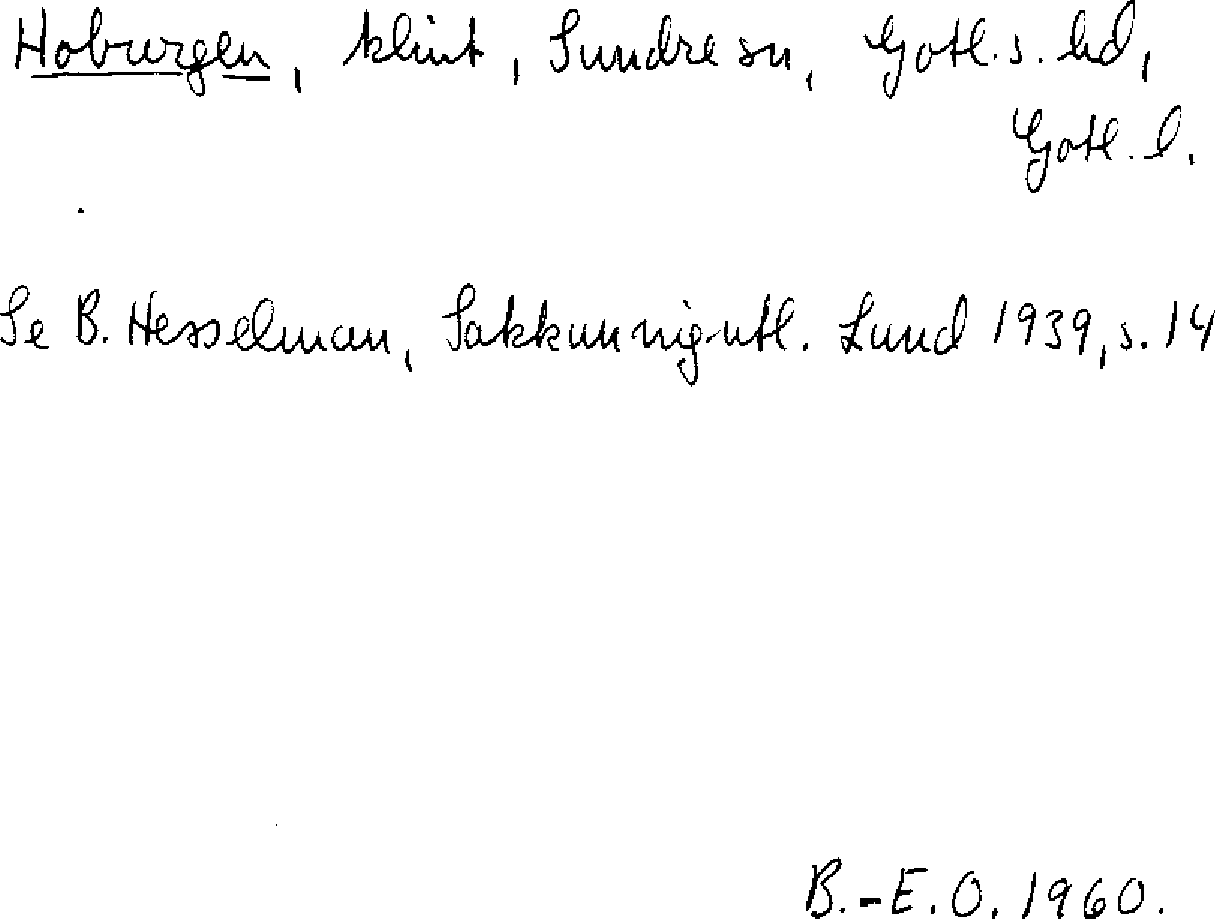 Hoburgen, klint, Sundre sn, Gotl. s. hd,
Gotl. l.
Se B. Hesselman, Sakkunnigutl. Lund 1939, s. 14
B.-E. O. 1960.